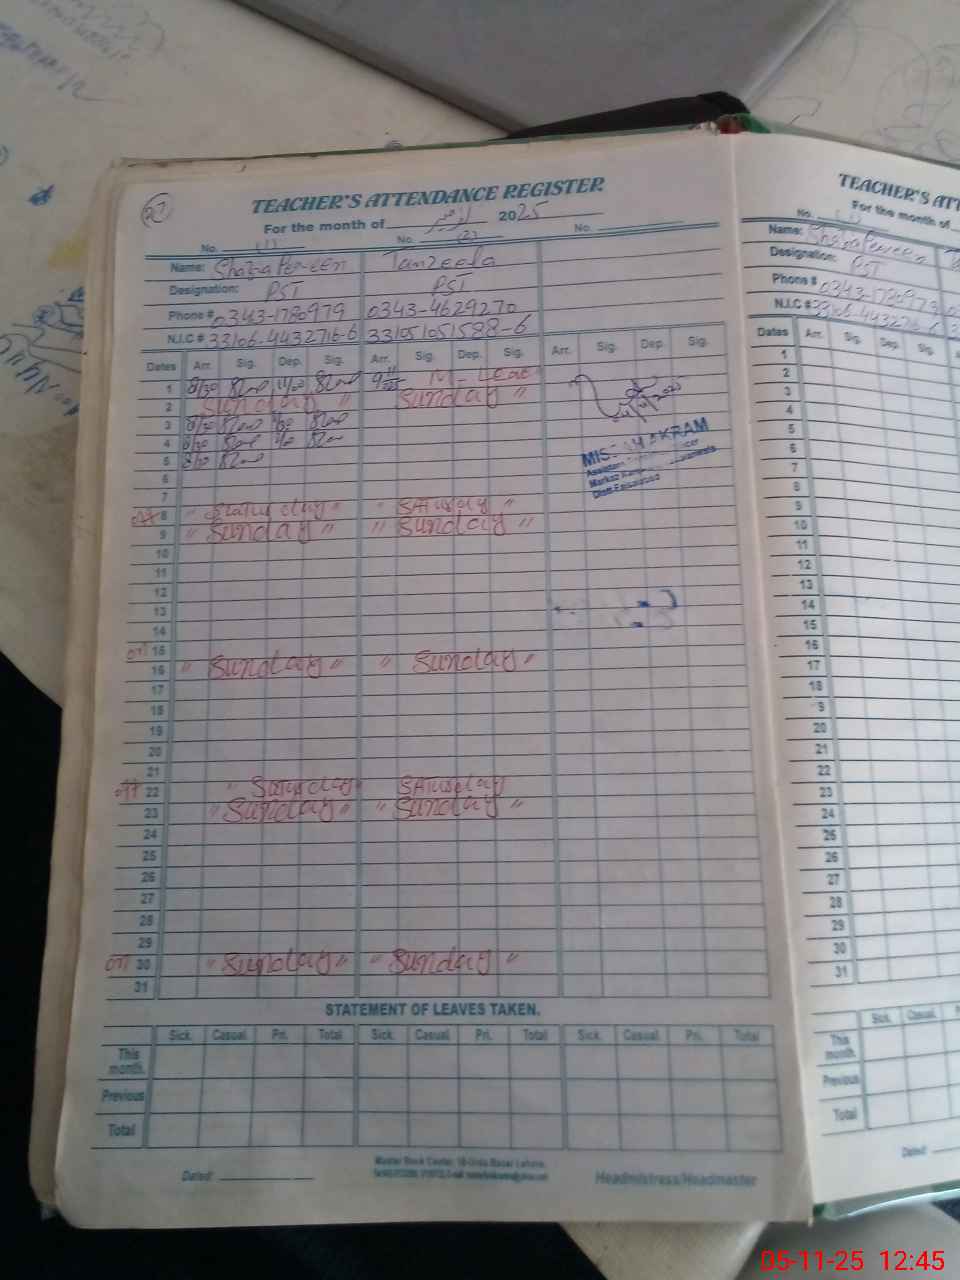 27
TEACHER'S ATTENDANCE REGISTER
For the month of نومبر 2025
No. (1) No. (2) No.
Name: Tanzeela
Designation: PST PST
Phone # 0343-1780979 0343-4629270
N.I.C # 33106-4432716-6 331051051588-6
Dates Arr. Sig. Dep. Sig. Arr. Sig. Dep. Sig. Arr. Sig. Dep. Sig.
1 8/30
2 Sunday " Sunday "
3 8/30
4 8/30
5 8/30
6
7
off 8 " Saturday " " SATurday "
9 " Sunday " " Sunday "
10
11
12
13
14
on 15
16 " Sunday " " Sunday "
17
18
19
20
21
off 22 " Saturday SATurday
23 " Sunday " " Sunday "
24
25
26
27
28
29
30 " Sunday " " Sunday "
31
AKRAM
Distt Faisalabad
STATEMENT OF LEAVES TAKEN.
Sick. Casual. Pri. Total Sick. Casual. Pri. Total Sick. Casual. Pri. Total
This month.
Previous
Total
Master Book Center, Urdu Bazar Lahore.
Dated: Headmistress/Headmaster
TEACHER'S ATT
For the month of
No. (1)
Name: Shazia Perveen
Designation: PST
Phone # 0343-1780979
N.I.C # 33106-4432716-6
Dates Arr. Sig. Dep. Sig.
1
2
3
4
5
6
7
8
9
10
11
12
13
14
15
16
17
18
19
20
21
22
23
24
25
26
27
28
29
30
31
Sick. Casual. Pri.
This month.
Previous
Total
Dated:
05-11-25 12:45